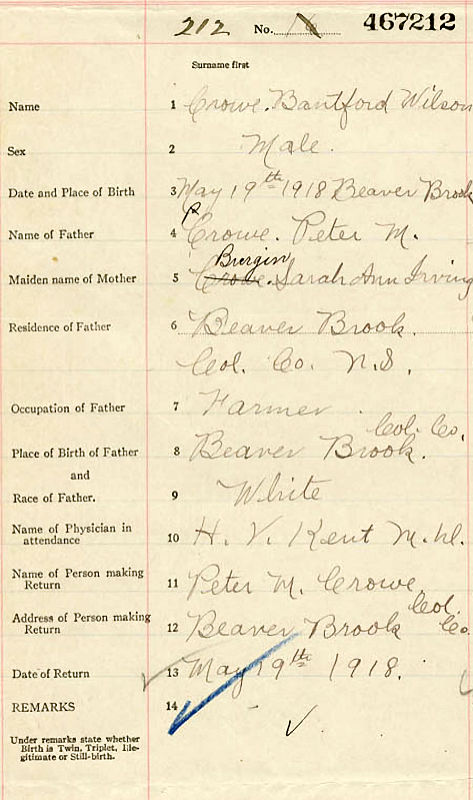 212 No. 467212
Surname first
Name 1 Crowe. Bantford Wilson
Sex 2 Male.
Date and Place of Birth 3 May 19th 1918 Beaver Brook
Name of Father 4 Crowe. Peter M.
Burgin
Maiden name of Mother 5 Crowe. Sarah Ann Irving
Residence of Father 6 Beaver Brook.
Col. Co. N.S.
Occupation of Father 7 Farmer.
Col. Co.
Place of Birth of Father 8 Beaver Brook.
and
Race of Father. 9 White
Name of Physician in
attendance 10 H. V. Kent M.D.
Name of Person making
Return 11 Peter M. Crowe
Address of Person making Col.
Return 12 Beaver Brook Co.
Date of Return 13 May 19th 1918.
REMARKS 14 -
Under remarks state whether
Birth is Twin, Triplet, Ille-
gitimate or Still-birth.